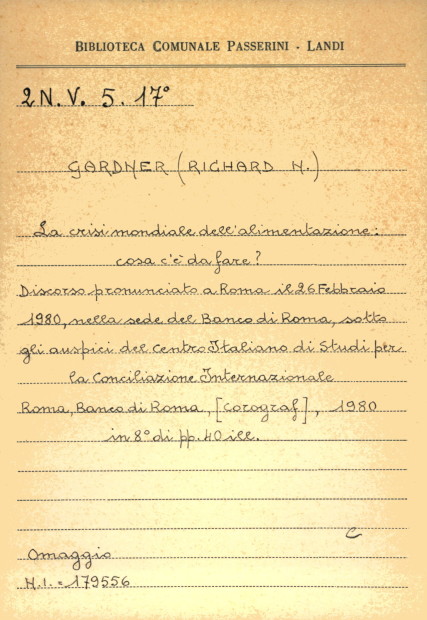 BIBLIOTECA COMUNALE PASSERINI - LANDI
2 N. V. 5. 17°
GARDNER (RICHARD N.)
La crisi mondiale dell'alimentazione:
cosa c'è da fare?
Discorso pronunciato a Roma il 26 Febbraio
1980, nella sede del Banco di Roma, sotto
gli auspici del Centro Italiano di Studi per
la Conciliazione Internazionale
Roma, Banco di Roma, [Corograf], 1980
in 8° di pp. 40 ill.
C
Omaggio
N.I. = 179556